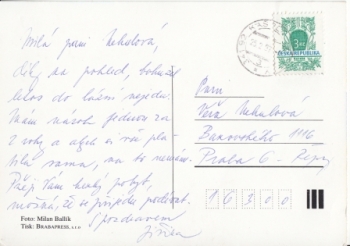 Milá paní Nehulová,
díky za pohled, bohužel
letos do lázní nejedu.
Mám nárok jednou za
2 roky a abych si vše pla-
tila sama, na to nemám.
Přeji Vám hezký pobyt,
možná, že se přijedu podívat.
S pozdravem
Jiřina
Foto: Milan Baflík
Tisk: BRABAPRESS, s.r.o
ČESKÁ REPUBLIKA
Paní
Věra Nehulová
Banovského 1116
Praha 6 - Řepy
16300